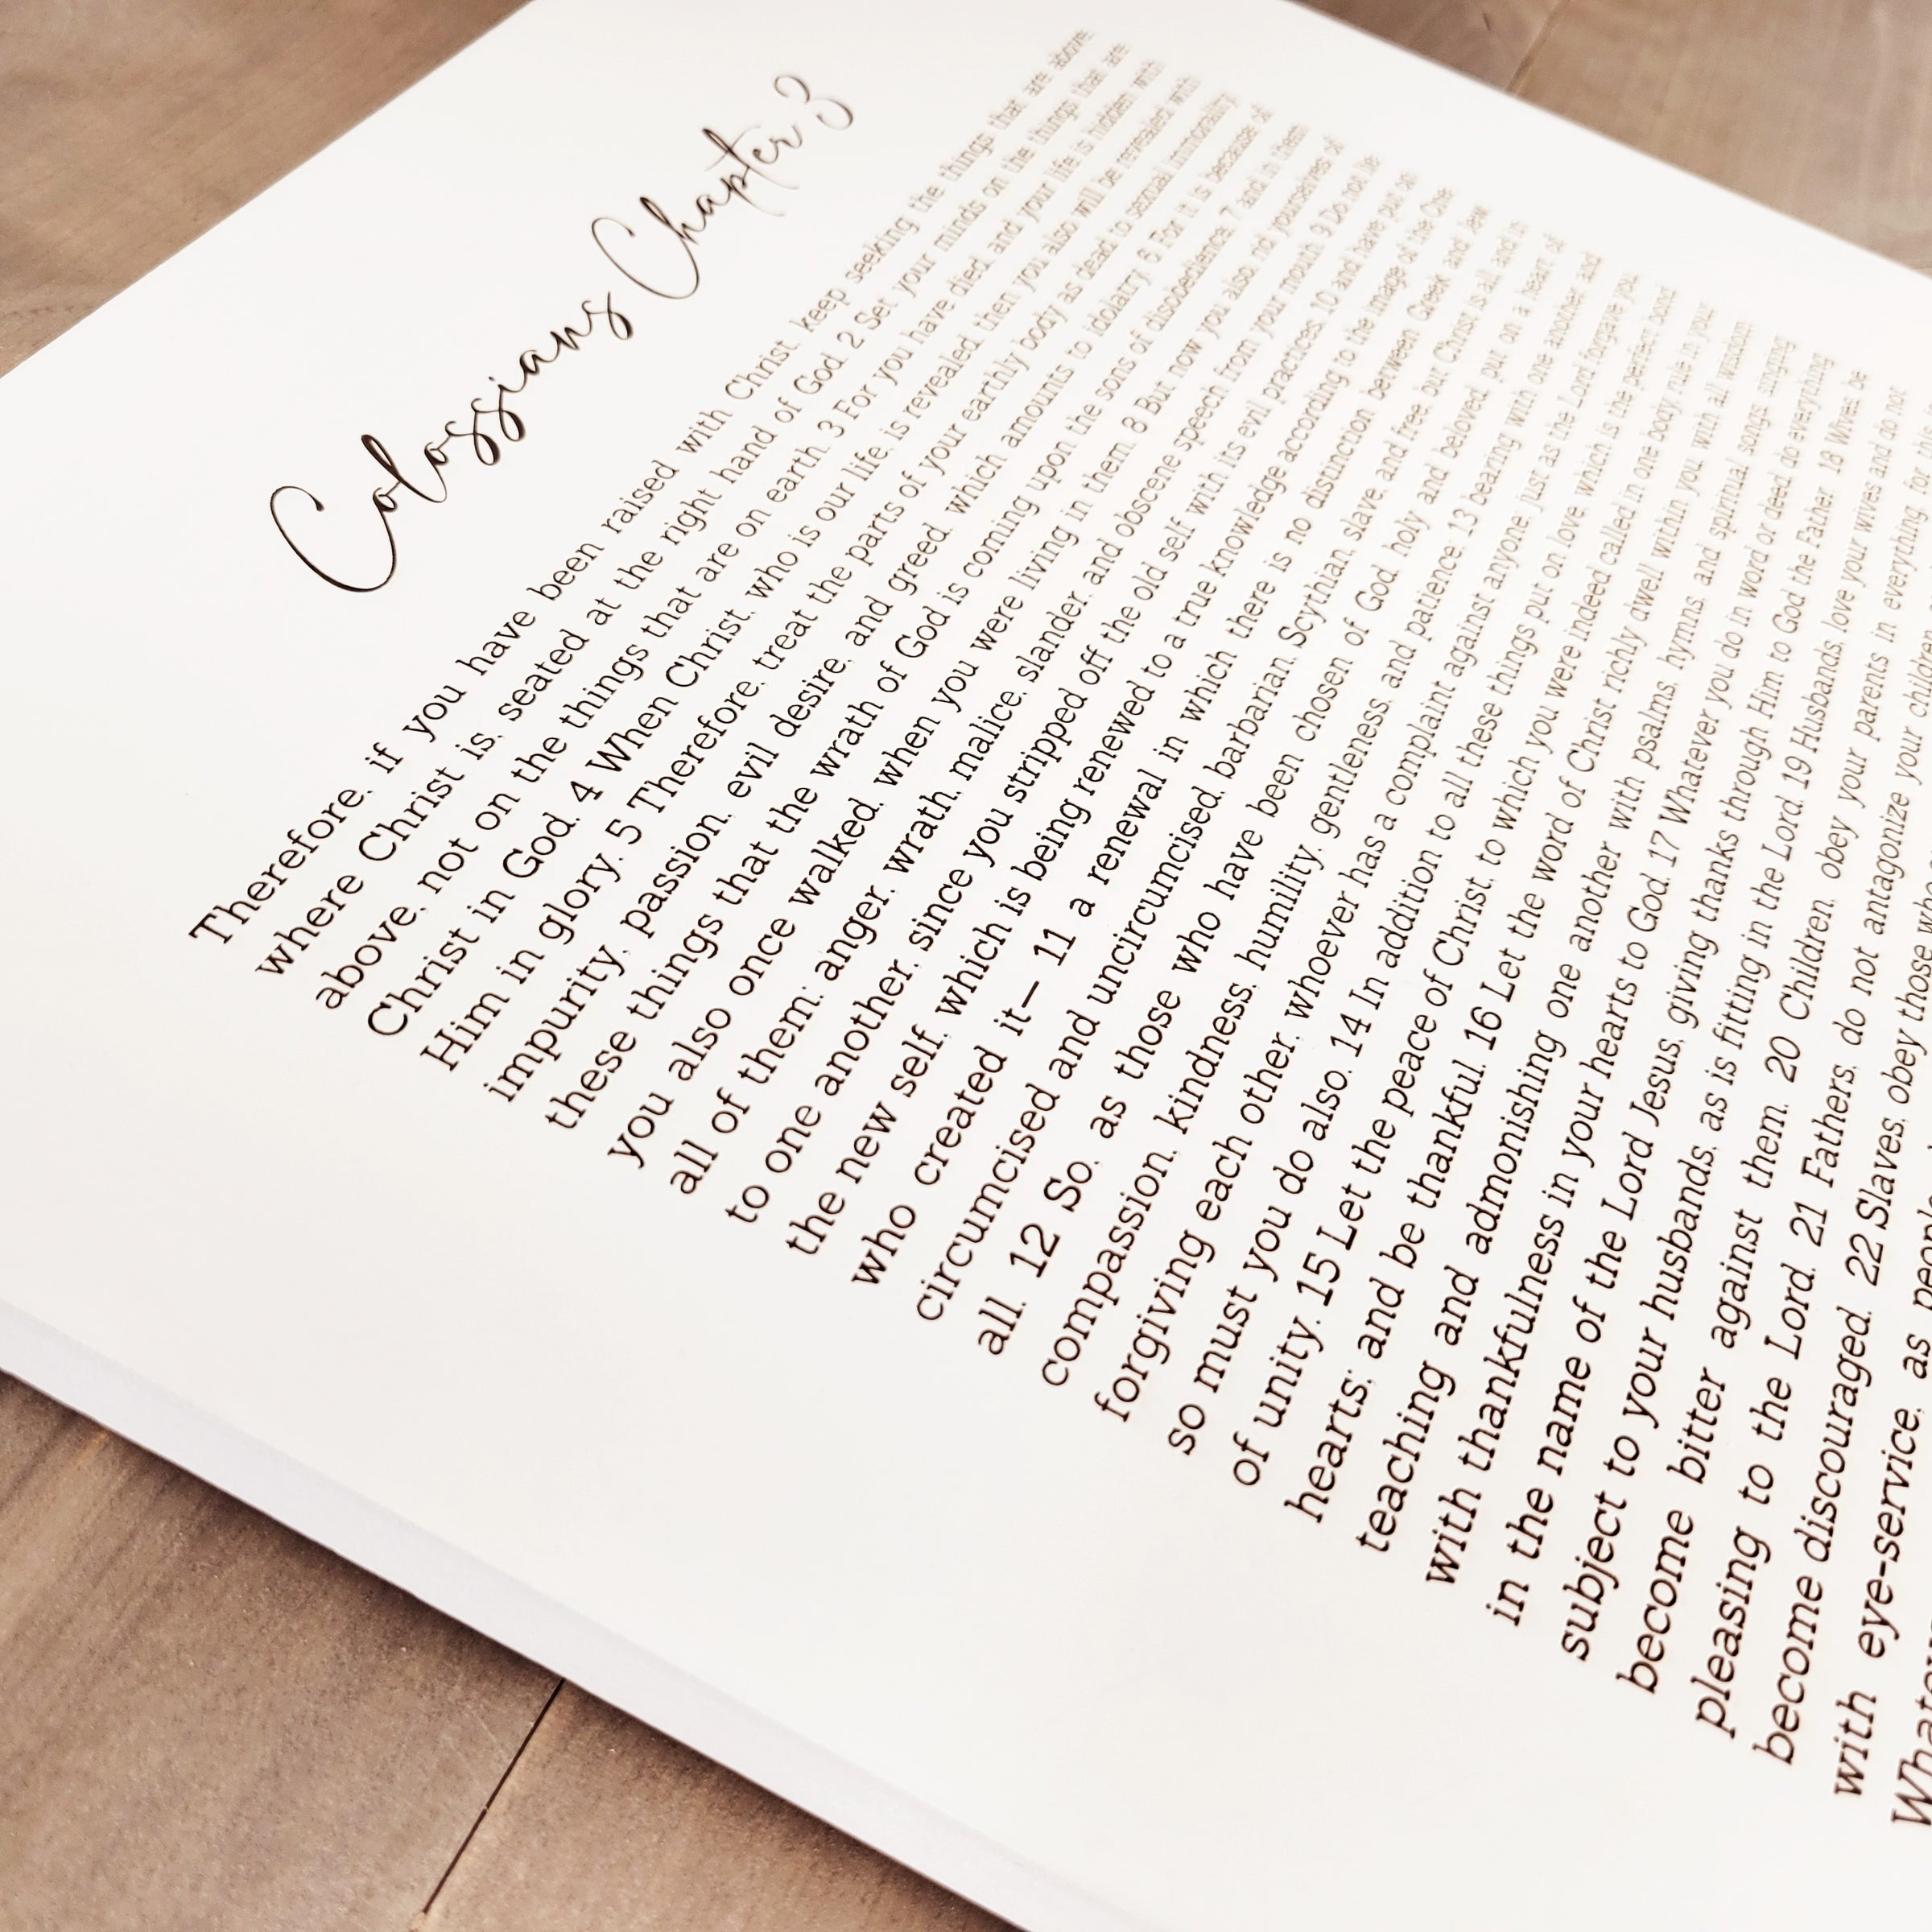 Colossians Chapter 3
Therefore, if you have been raised with Christ, keep seeking the things that are above,
where Christ is, seated at the right hand of God. 2 Set your minds on the things that are
above, not on the things that are on earth. 3 For you have died, and your life is hidden with
Christ in God. 4 When Christ, who is our life, is revealed, then you also will be revealed with
Him in glory. 5 Therefore, treat the parts of your earthly body as dead to sexual immorality,
impurity, passion, evil desire, and greed, which amounts to idolatry. 6 For it is because of
these things that the wrath of God is coming upon the sons of disobedience, 7 and in them
you also once walked, when you were living in them. 8 But now you also, rid yourselves of
all of them: anger, wrath, malice, slander, and obscene speech from your mouth. 9 Do not lie
to one another, since you stripped off the old self with its evil practices, 10 and have put on
the new self, which is being renewed to a true knowledge according to the image of the One
who created it— 11 a renewal in which there is no distinction between Greek and Jew,
circumcised and uncircumcised, barbarian, Scythian, slave, and free, but Christ is all, and in
all. 12 So, as those who have been chosen of God, holy and beloved, put on a heart of
compassion, kindness, humility, gentleness, and patience; 13 bearing with one another, and
forgiving each other, whoever has a complaint against anyone; just as the Lord forgave you,
so must you do also. 14 In addition to all these things put on love, which is the perfect bond
of unity. 15 Let the peace of Christ, to which you were indeed called in one body, rule in your
hearts; and be thankful. 16 Let the word of Christ richly dwell within you, with all wisdom
teaching and admonishing one another with psalms, hymns, and spiritual songs, singing
with thankfulness in your hearts to God. 17 Whatever you do in word or deed, do everything
in the name of the Lord Jesus, giving thanks through Him to God the Father. 18 Wives, be
subject to your husbands, as is fitting in the Lord. 19 Husbands, love your wives and do not
become bitter against them. 20 Children, obey your parents in everything, for
pleasing to the Lord. 21 Fathers, do not antagonize your children
become discouraged. 22 Slaves, obey those who
with eye-service, as people
Whatever